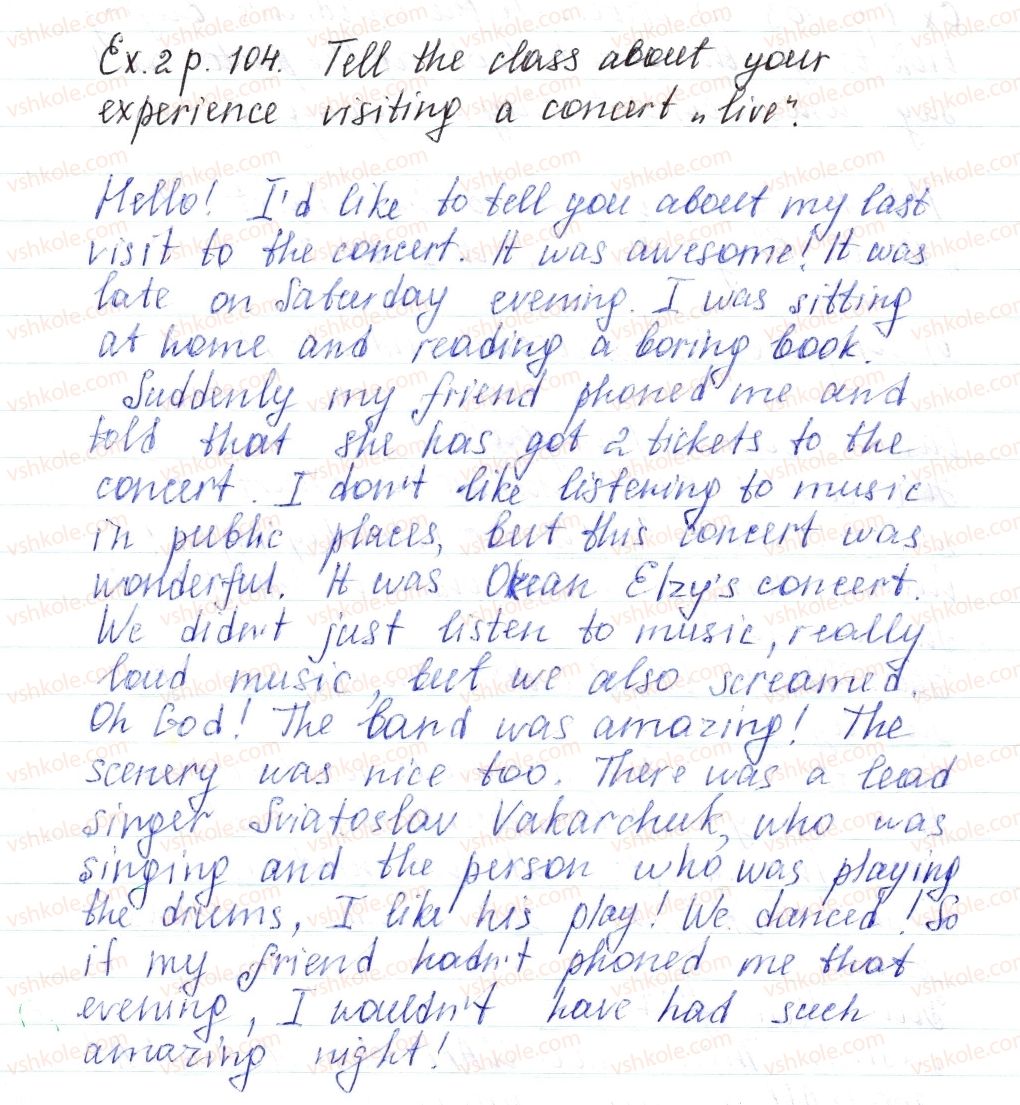 Ex. 2 p. 104. Tell the class about your
experience visiting a concert „live".
Hello! I'd like to tell you about my last
visit to the concert. It was awesome! It was
late on Saturday evening. I was sitting
at home and reading a boring book.
Suddenly my friend phoned me and
told that she has got 2 tickets to the
concert. I don't like listening to music
in public places, but this concert was
wonderful. It was Okean Elzy's concert.
We didn't just listen to music, really
loud music, but we also screamed.
Oh God! The band was amazing! The
scenery was nice too. There was a lead
singer Sviatoslav Vakarchuk, who was
singing and the person who was playing
the drums, I like his play! We danced! So
if my friend hadn't phoned me that
evening, I wouldn't have had such
amazing night!